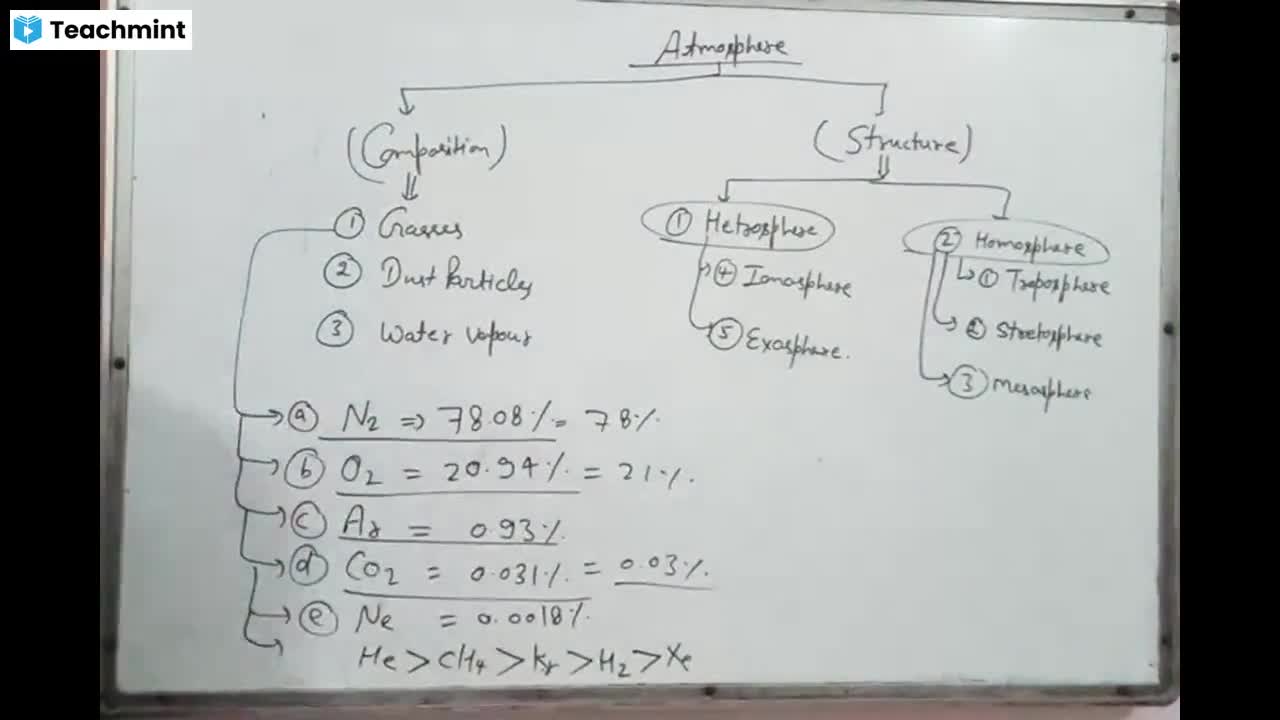 Teachmint
Atmosphere
(Composition)
① Gasses
② Dust Particles
③ Water vapour
ⓐ N2 ⇒ 78.08% = 78%
ⓑ O2 = 20.94% = 21%
ⓒ Ar = 0.93%
ⓓ CO2 = 0.031% = 0.03%
ⓔ Ne = 0.0018%
He > CH4 > Kr > H2 > Xe
(Structure)
① Hetrosphere
④ Ionosphere
⑤ Exosphere.
② Homosphere
① Troposphere
② Stretosphere
③ Mesosphere